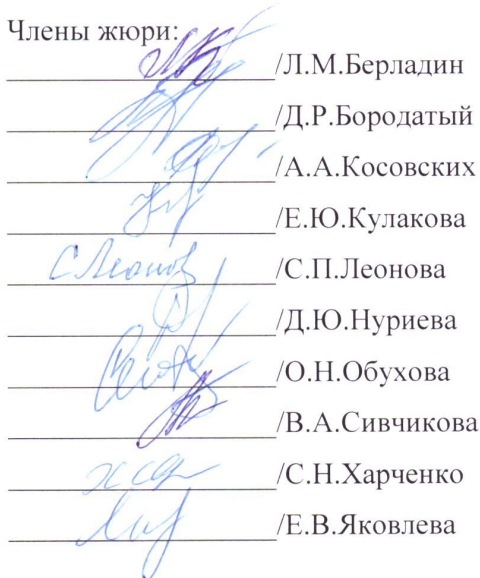 Члены жюри:
/Л.М.Берладин
/Д.Р.Бородатый
/А.А.Косовских
/Е.Ю.Кулакова
С Леонов /С.П.Леонова
/Д.Ю.Нуриева
/О.Н.Обухова
/В.А.Сивчикова
/С.Н.Харченко
/Е.В.Яковлева